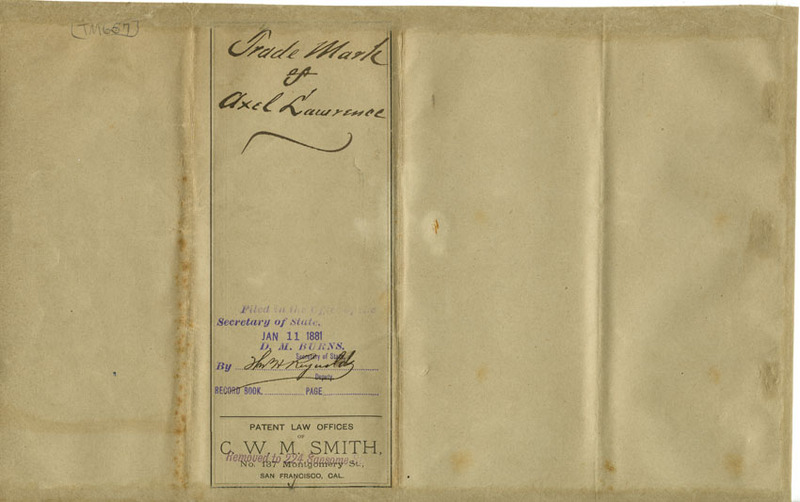 (TM667)
Trade Mark
of
Axel Lawrence
Filed in the Office of the
Secretary of State,
JAN 11 1881
D. M. BURNS,
Secretary of State
By Thos H Reynolds
Deputy.
RECORD BOOK PAGE
PATENT LAW OFFICES
OF
C. W. M. SMITH,
Removed to 224 Sansome
No. 137 Montgomery St.,
SAN FRANCISCO, CAL.